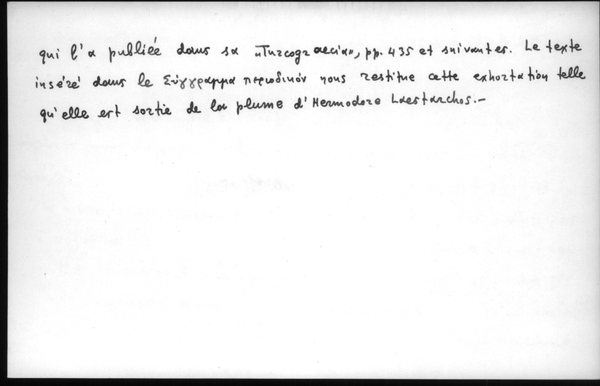 qui l'a publiée dans sa «Turcograecia», pp. 435 et suivantes. Le texte
inséré dans le Σύγγραμμα περιοδικόν nous restitue cette exhortation telle
qu'elle est sortie de la plume d'Hermodore Lestarchos.–